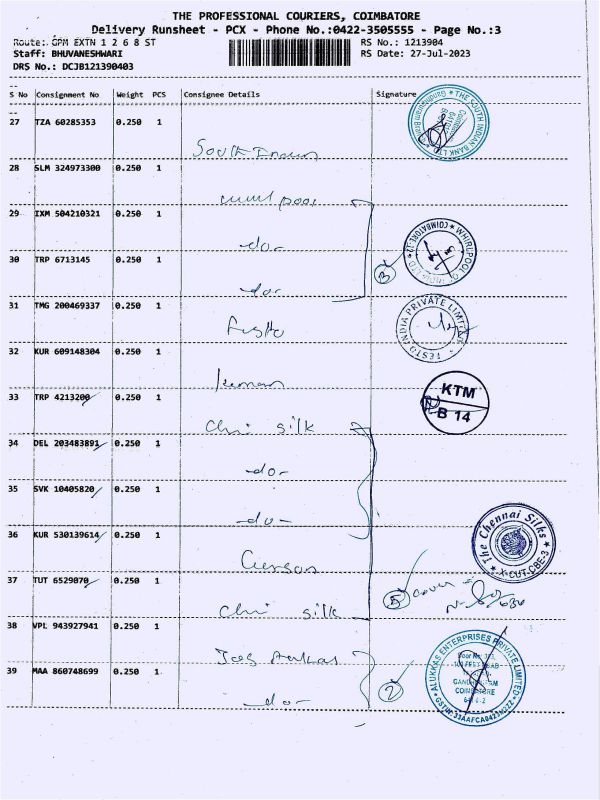 THE PROFESSIONAL COURIERS, COIMBATORE
Delivery Runsheet - PCX - Phone No.:0422-3505555 - Page No.:3
Route: GPM EXTN 1 2 6 8 ST
RS No.: 1213904
Staff: BHUVANESHWARI
RS Date: 27-Jul-2023
DRS No.: DCJB121390403
S No Consignment No Weight PCS Consignee Details Signature
27 TZA 60285353 0.250 1
South Indian
THE SOUTH INDIAN BANK LTD
28 SLM 324973300 0.250 1
29 IXM 504210321 0.250 1
-do-
WHIRLPOOL OF INDIA LTD COIMBATORE-12
30 TRP 6713145 0.250 1
-do-
3
31 TMG 200469337 0.250 1
TESTO INDIA PRIVATE LIMITED
32 KUR 609148304 0.250 1
33 TRP 4213200 0.250 1
KTM
B 14
silk
34 DEL 203483891 0.250 1
-do-
35 SVK 10405820 0.250 1
-do-
36 KUR 530139614 0.250 1
The Chennai Silks
X-CUT-CBE-3
37 TUT 6529070 0.250 1
silk
5 cover
38 VPL 943927941 0.250 1
ALUKKAS ENTERPRISES PRIVATE LIMITED
39 MAA 860748699 0.250 1
-do-
2
COIMBATORE